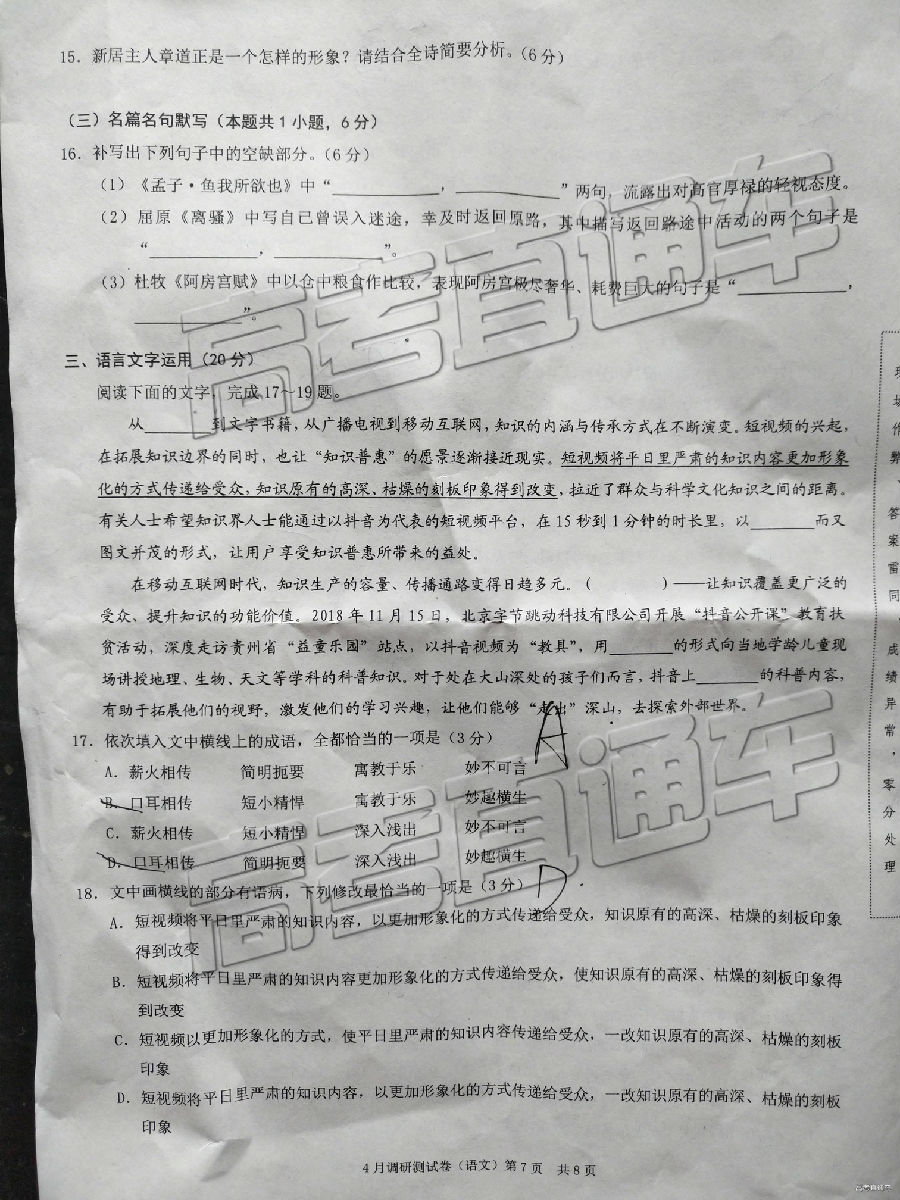 15．新居主人章道正是一个怎样的形象？请结合全诗简要分析。（6分）
（三）名篇名句默写（本题共1小题，6分）
16．补写出下列句子中的空缺部分。（6分）
（1）《孟子·鱼我所欲也》中“__________，__________”两句，流露出对高官厚禄的轻视态度。
（2）屈原《离骚》中写自己曾误入迷途，幸及时返回原路，其中描写返回路途中活动的两个句子是
“__________，__________”。
（3）杜牧《阿房宫赋》中以仓中粮食作比较，表现阿房宫极尽奢华、耗费巨大的句子是“__________，
__________”。
三、语言文字运用（20分）
阅读下面的文字，完成17～19题。
从______到文字书籍，从广播电视到移动互联网，知识的内涵与传承方式在不断演变。短视频的兴起，
在拓展知识边界的同时，也让“知识普惠”的愿景逐渐接近现实。短视频将平日里严肃的知识内容更加形象
化的方式传递给受众，知识原有的高深、枯燥的刻板印象得到改变，拉近了群众与科学文化知识之间的距离。
有关人士希望知识界人士能通过以抖音为代表的短视频平台，在15秒到1分钟的时长里，以______而又
图文并茂的形式，让用户享受知识普惠所带来的益处。
在移动互联网时代，知识生产的容量、传播通路变得日趋多元。（　　　　）——让知识覆盖更广泛的
受众、提升知识的功能价值。2018年11月15日，北京字节跳动科技有限公司开展“抖音公开课”教育扶
贫活动，深度走访贵州省“益童乐园”站点，以抖音视频为“教具”，用______的形式向当地学龄儿童现
场讲授地理、生物、天文等学科的科普知识。对于处在大山深处的孩子们而言，抖音上______的科普内容，
有助于拓展他们的视野，激发他们的学习兴趣，让他们能够“走出”深山，去探索外部世界。
17．依次填入文中横线上的成语，全都恰当的一项是（3分）
A
A．薪火相传　简明扼要　寓教于乐　妙不可言
B．口耳相传　短小精悍　寓教于乐　妙趣横生
C．薪火相传　短小精悍　深入浅出　妙不可言
D．口耳相传　简明扼要　深入浅出　妙趣横生
18．文中画横线的部分有语病，下列修改最恰当的一项是（3分）
D
A．短视频将平日里严肃的知识内容，以更加形象化的方式传递给受众，知识原有的高深、枯燥的刻板印象
得到改变
B．短视频将平日里严肃的知识内容更加形象化的方式传递给受众，使知识原有的高深、枯燥的刻板印象得
到改变
C．短视频以更加形象化的方式，使平日里严肃的知识内容传递给受众，一改知识原有的高深、枯燥的刻板
印象
D．短视频将平日里严肃的知识内容，以更加形象化的方式传递给受众，一改知识原有的高深、枯燥的刻板
印象
4月调研测试卷（语文）第7页　共8页
场作弊、答案雷同，成绩异常，零分处理
高考直通车
高考直通车